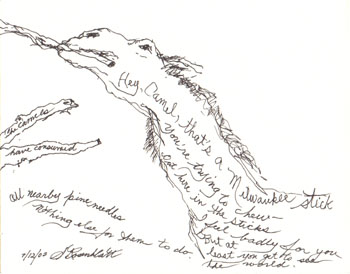 Hey, Camel, that's a Milwaukee stick
you're trying to chew—
out here in the sticks
I feel badly for you
but at
least you get to see
the world
The Camels
have consumed
all nearby pine needles
Nothing else for them to do.
7/12/03